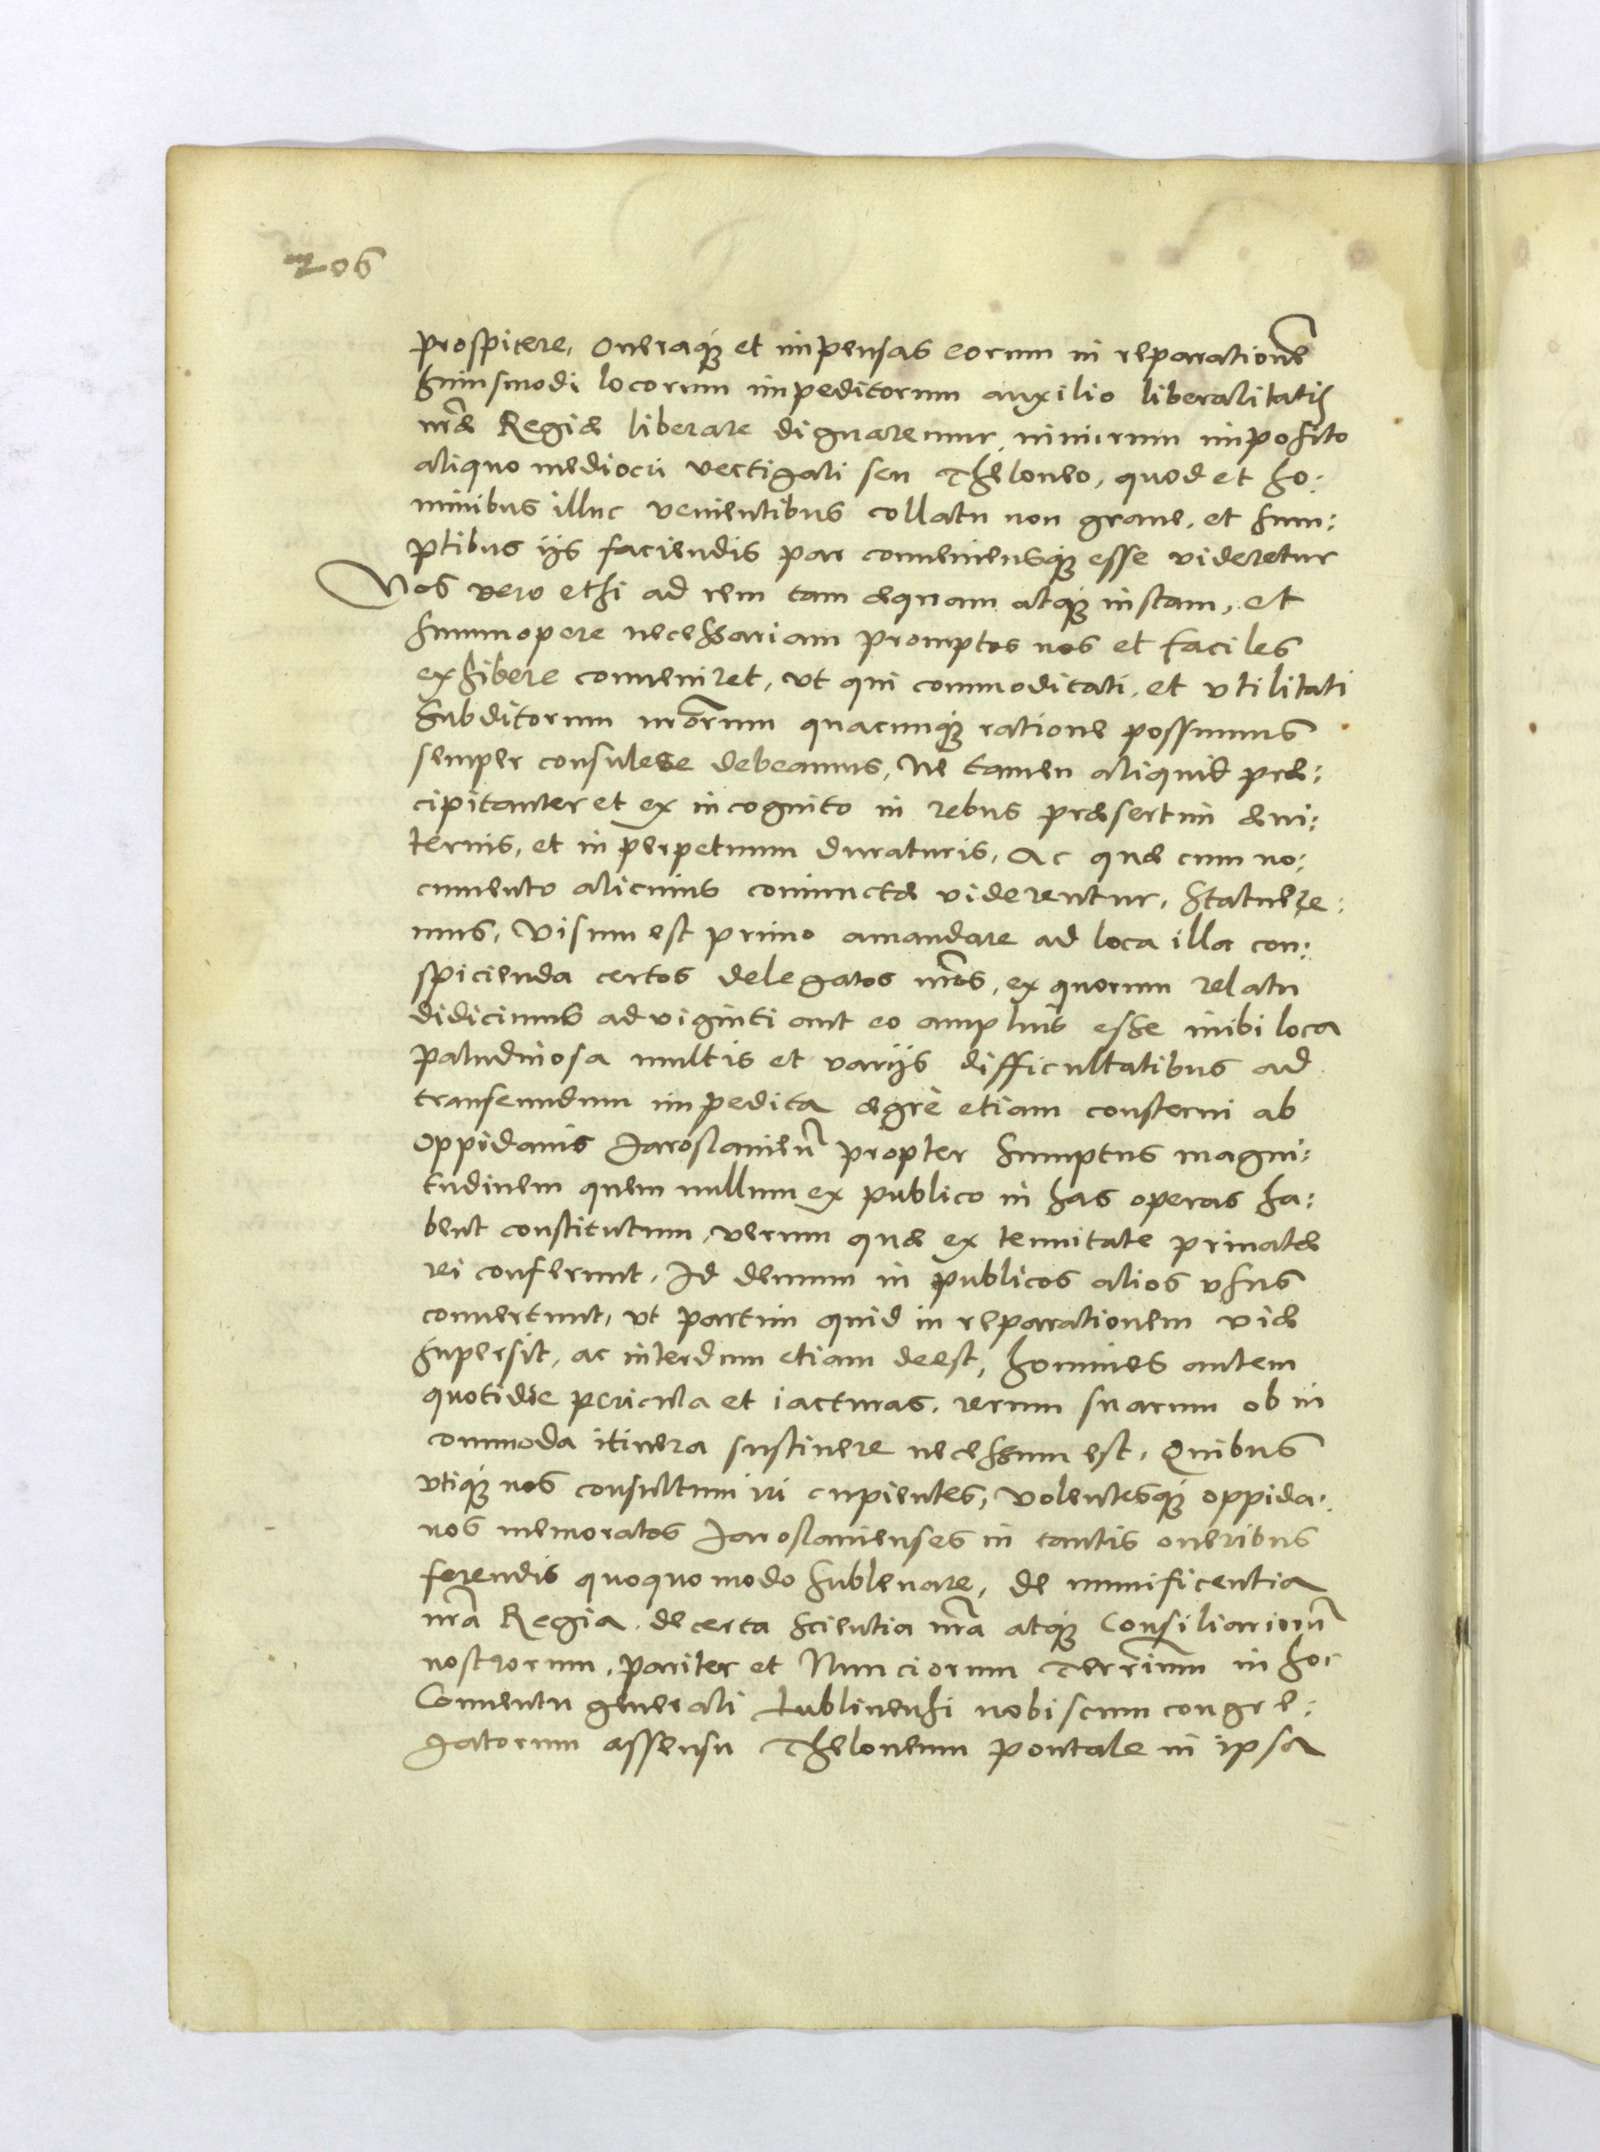 206
prospicere, oneraq́ue et impensas eorum in reparationẽ
huiusmodi locorum impeditorum auxilio liberalitatis
nr̃æ Regiæ liberare dignaremur nimirum imposito
aliquo mediocri vectigali seu Theloneo, quod et ho:
minibus illuc venientibus collatu non graue, et sum:
ptibus ijs faciendis par conueniensq́ue esse videretur
Nos vero etsi ad rem tam æquam atq́ue iustam, et
summopere necessariam promptos nos et faciles
exhibere conueniret, vt qui commoditati, et vtilitati
subditorum nr̃orum quacunq́ue ratione possumus
semper consulere debeamus, Ne tamen aliquid præ:
cipitanter et ex incognito in rebus præsertim æui:
ternis, et in perpetuum duraturis, Ac quæ cum no:
cumento alicuius coniunctæ viderentur, Statuere:
mus, Visum est primo amandare ad loca illa con:
spicienda certos delegatos nr̃os, ex quorum relatu
didicimus ad viginti aut eo amplius esse inibi loca
paludinosa multis et varijs difficultatibus ad
transeundum impedita ægrè etiam consterni ab
oppidanis Jaroslauień propter sumptus magni:
tudinem quem nullum ex publico in has operas ha:
bent constitutum, verum quæ ex tenuitate priuatæ
rei conferunt, Id demum in publicos alios vsus
conuertunt, vt partim quid in reparationem viæ
supersit, ac interdum etiam deest, homines autem
quotidie pericula et iacturas, rerum suarum ob in
commoda itinera sustinere necessum est, Quibus
vtiq́ue nos consultum iri cupientes, volentesq́ue oppida:
nos memoratos Jaroslauienses in tantis oneribus
ferendis quoquomodo subleuare, de munificentia
nr̃a Regia, de certa scientia nr̃a atq́ue Consiliariorũ
nostrorum, pariter et Nunciorum Terr̃rum in hoc
Conuentu generali Lublinensi nobiscum congre:
gatorum assensu Theloneum pontale in ipsa